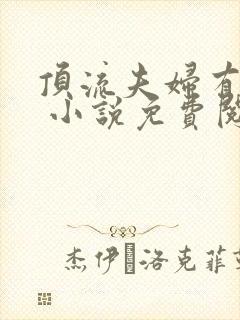 頂流夫婦有
小說免費閱
杰伊 洛克菲